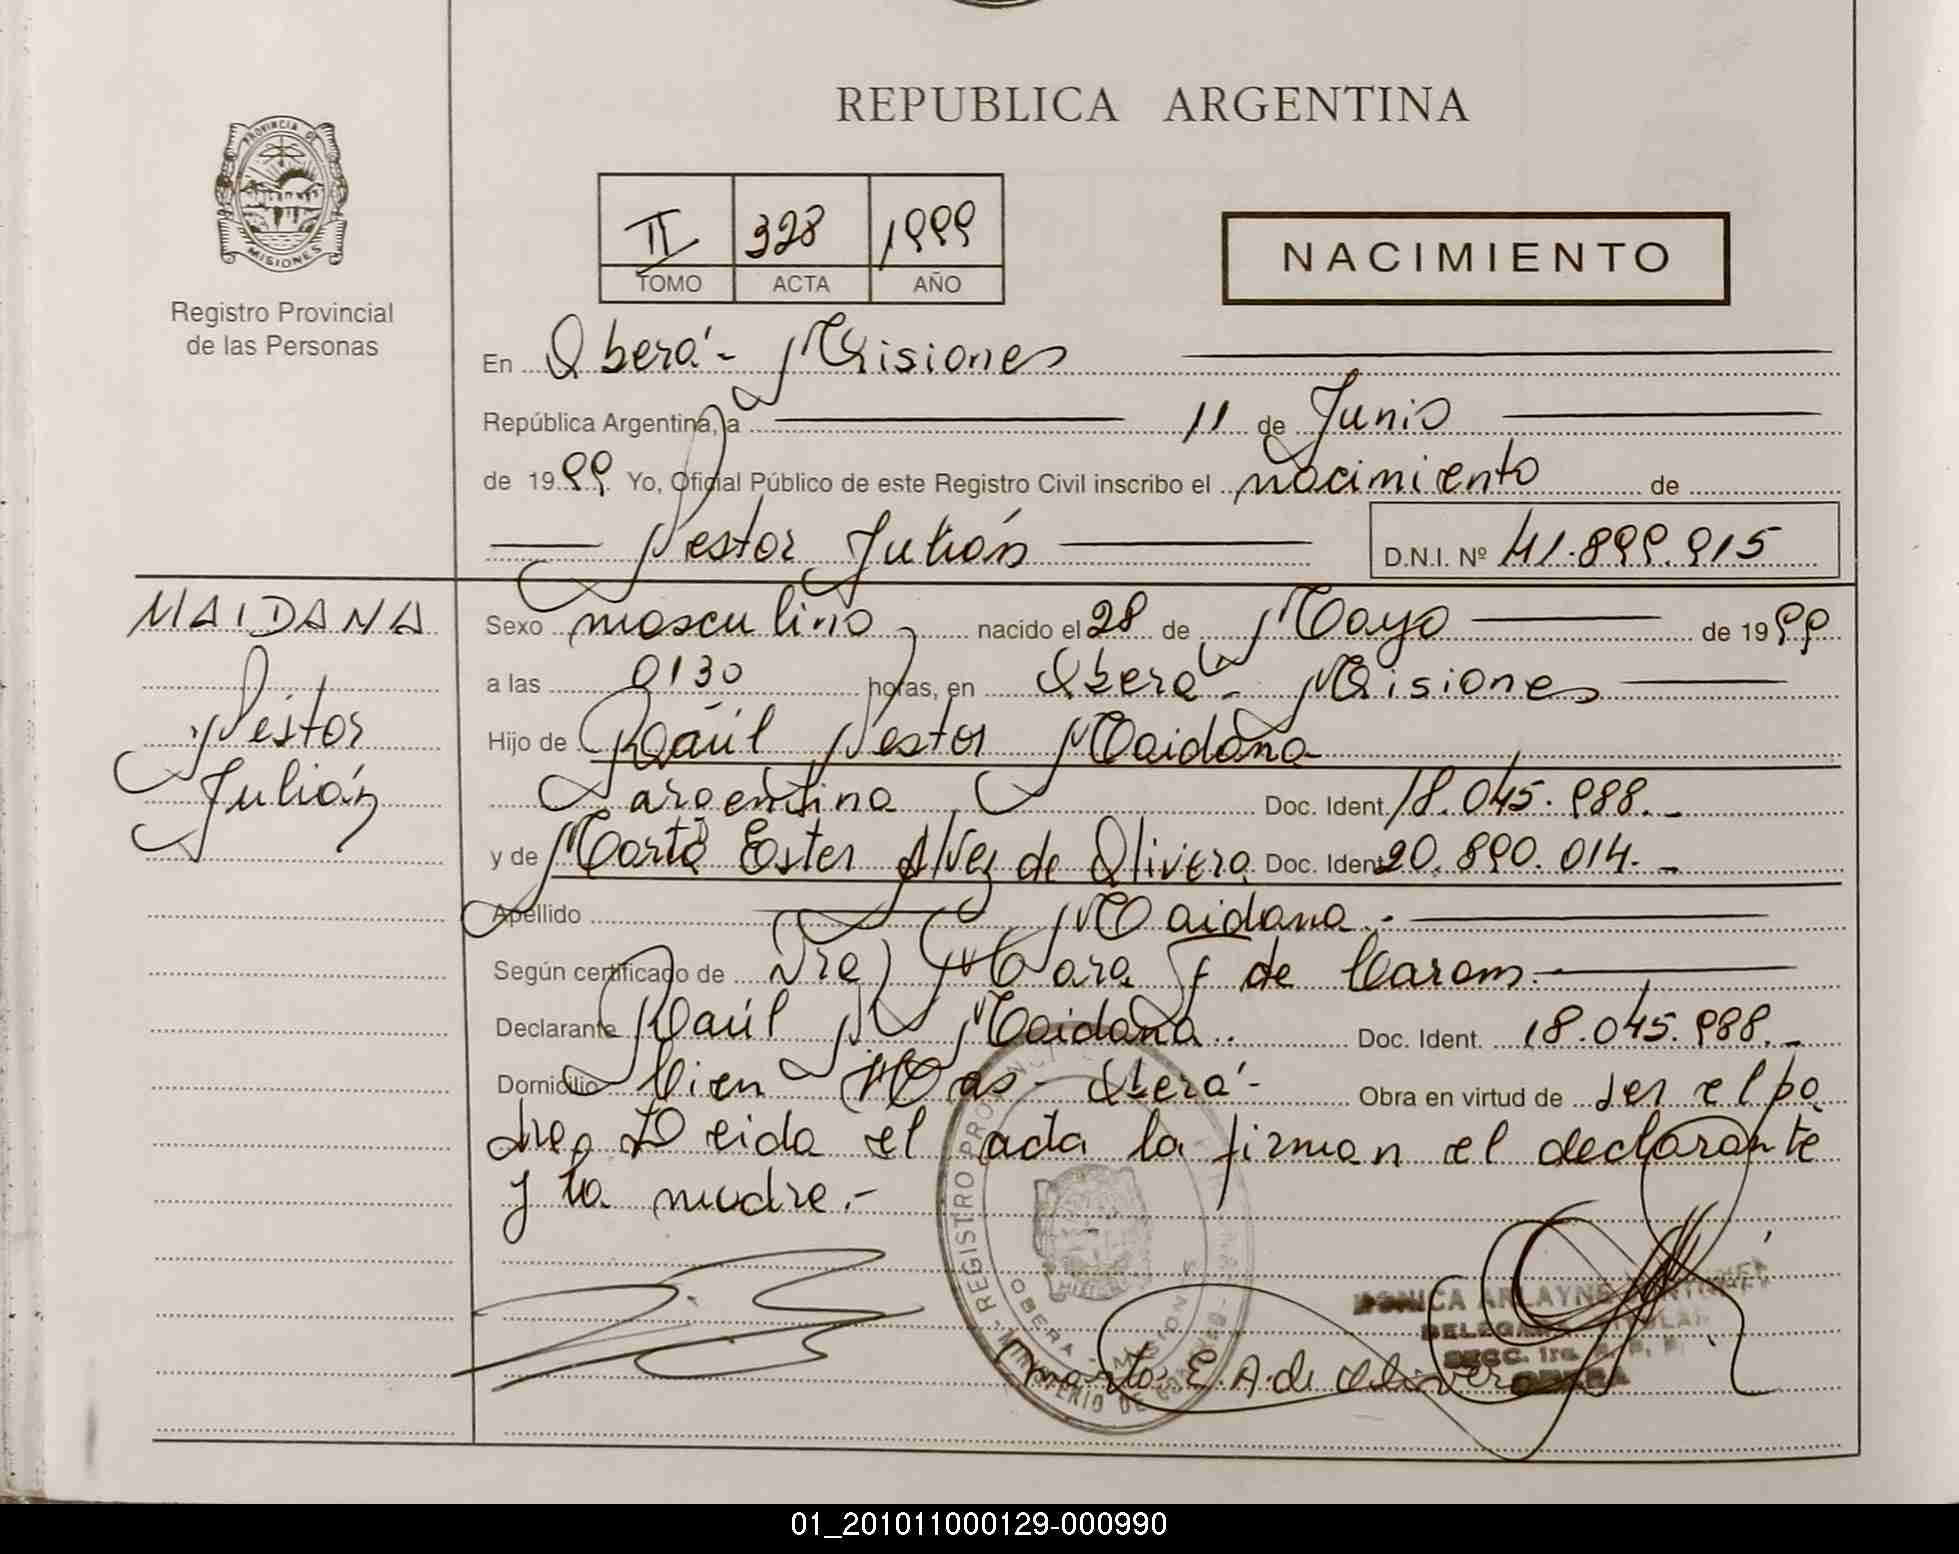 REPUBLICA ARGENTINA
PROVINCIA DE
MISIONES
Registro Provincial
de las Personas
II 328 1999
TOMO ACTA AÑO
NACIMIENTO
En Oberá - Misiones
República Argentina, a 11 de Junio
de 1999 Yo, Oficial Público de este Registro Civil inscribo el nacimiento de
Nestor Julián D.N.I. Nº 41.899.915
MAIDANA
Néstor
Julián
Sexo masculino nacido el 28 de Mayo de 1999
a las 0130 horas, en Oberá - Misiones
Hijo de Raúl Nestor Maidana
argentino Doc. Ident. 18.045.988.-
y de Marta Ester Alvez de Olivera Doc. Ident. 20.890.014.-
Apellido Maidana.-
Según certificado de Dra. Mara F de
Declarante Raúl N Maidana.. Doc. Ident. 18.045.988.-
Domicilio Cien Has - Oberá - Obra en virtud de ser el pa
dre. Leida el acta la firman el declarante
y la madre.-
REGISTRO PROVINCIAL
OBERA - MISIONES
MINISTERIO DE
Marta E. A. de Olivera
MONICA ARLAYNE
DELEGADA TITULAR
SECC. 1ra. R. P. P.
OBERA
01_201011000129-000990